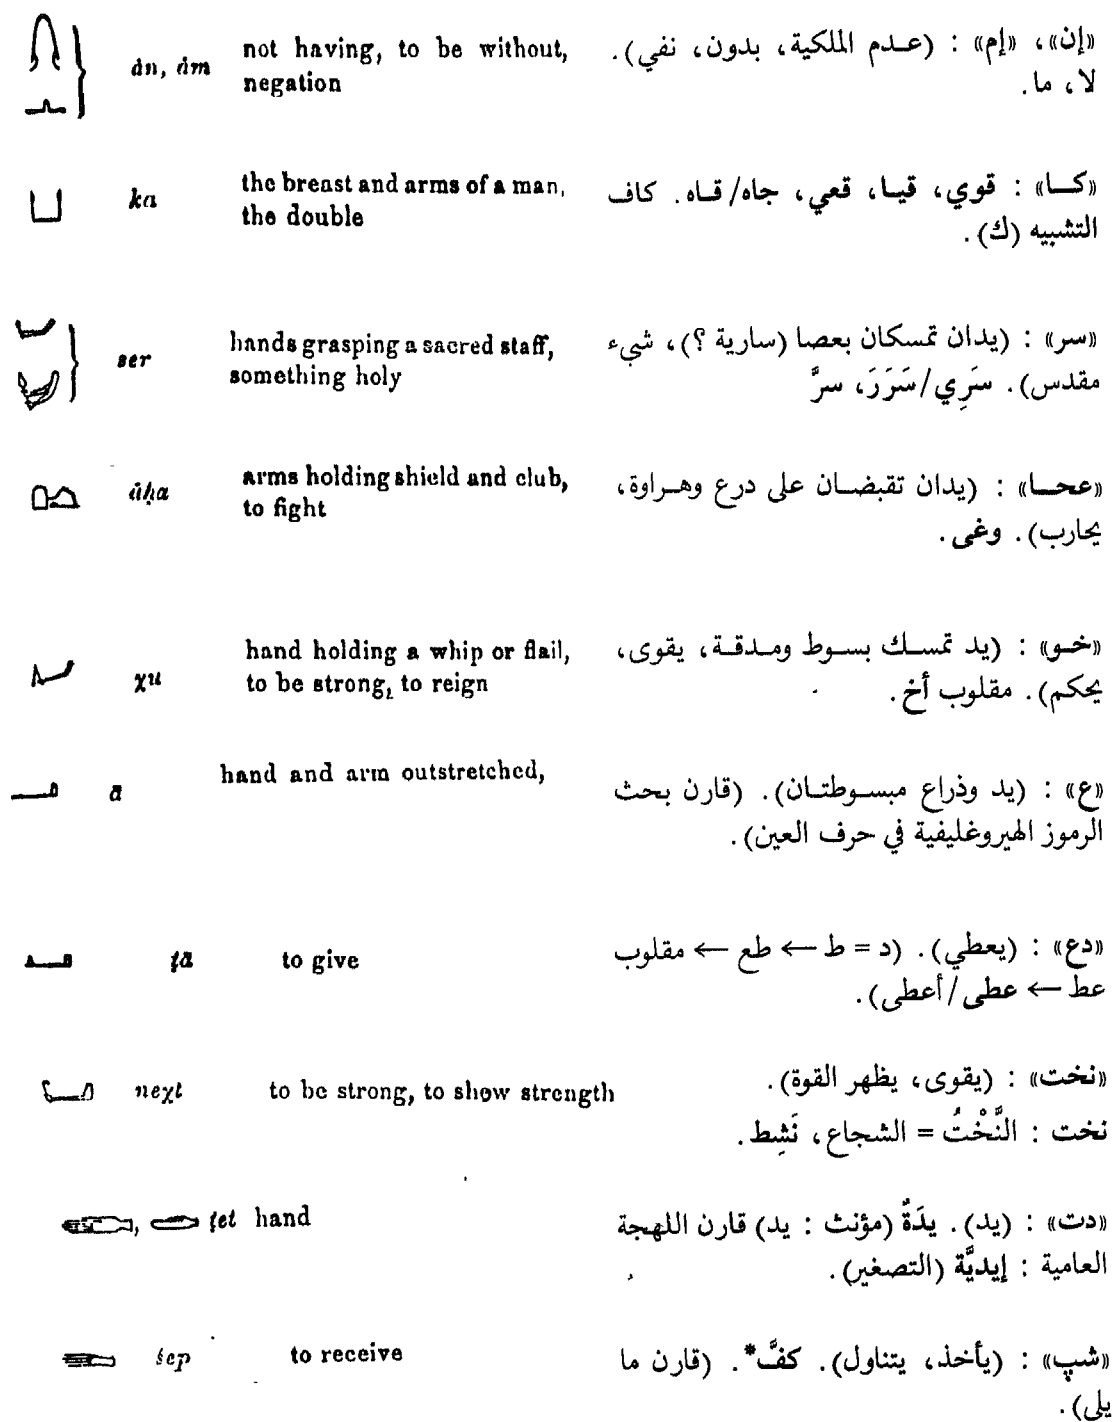 ȧn, ȧm not having, to be without, «إن»، «إم» : (عـدم الملكية، بدون، نفي).
negation لا، ما.
ka the breast and arms of a man, «كـا» : قوي، قيـا، قعي، جاه/قـاه. كاف
the double التشبيه (ك).
ser hands grasping a sacred staff, «سر» : (يدان تمسكان بعصا (سارية ؟)، شيء
something holy مقدس). سَرِي/سَرَرَ، سرَّ
āḥa arms holding shield and club, «عحـا» : (يدان تقبضـان على درع وهـراوة،
to fight يحارب). وغى.
χu hand holding a whip or flail, «خـو» : (يد تمسـك بسـوط ومـدقـة، يقوى،
to be strong, to reign يحكم). مقلوب أخ.
ā hand and arm outstretched, «ع» : (يد وذراع مبسـوطتـان). (قارن بحث
الرموز الهيروغليفية في حرف العين).
ṭā to give «دع» : (يعطي). (د = ط ← طع ← مقلوب
عط ← عطى/أعطى).
neχt to be strong, to show strength «نخت» : (يقوى، يظهر القوة).
نخت : النَّخْتُ = الشجاع، نَشِط.
, ṭet hand «دت» : (يد). يدَةٌ (مؤنث : يد) قارن اللهجة
العامية : إيديَّة (التصغير).
śep to receive «شپ» : (يأخذ، يتناول). كفَّ*. (قارن ما
يلي).